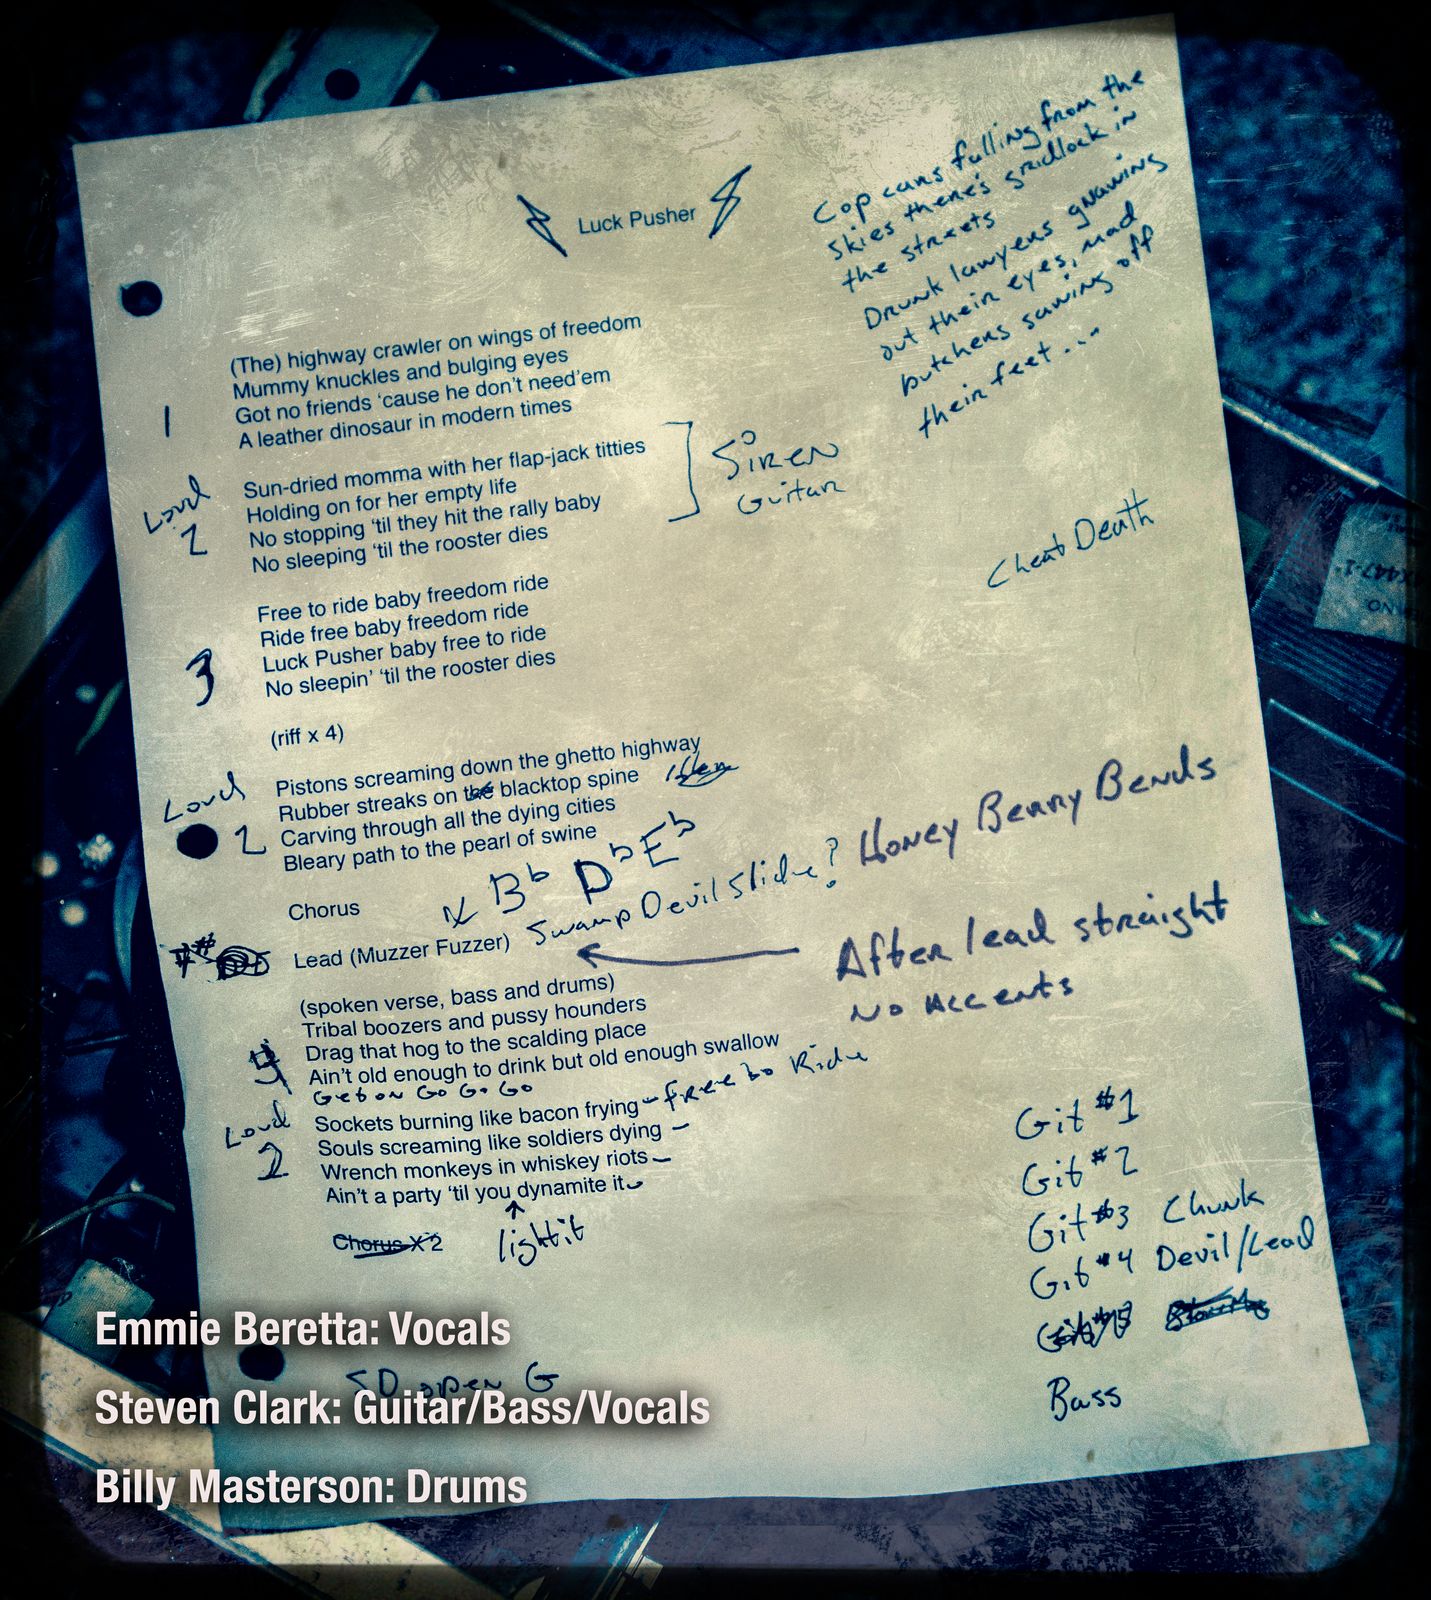 Luck Pusher
Cop cars falling from the
skies there's gridlock in
the streets
Drunk lawyers gnawing
out their eyes, mad
butchers sawing off
their feet...
(The) highway crawler on wings of freedom
Mummy knuckles and bulging eyes
1 Got no friends ‘cause he don't need'em
A leather dinosaur in modern times
Sun-dried momma with her flap-jack titties
Loud Holding on for her empty life
2 No stopping ‘til they hit the rally baby
No sleeping ‘til the rooster dies
Siren
Guitar
Cheat Death
Free to ride baby freedom ride
Ride free baby freedom ride
3 Luck Pusher baby free to ride
No sleepin' ‘til the rooster dies
(riff x 4)
Pistons screaming down the ghetto highway
Loud Rubber streaks on the blacktop spine
2 Carving through all the dying cities
Bleary path to the pearl of swine
Chorus
Bb Db Eb
Lead (Muzzer Fuzzer) Swamp Devil Slide? Honey Benny Bends
After lead straight
No Accents
(spoken verse, bass and drums)
Tribal boozers and pussy hounders
4 Drag that hog to the scalding place
Ain't old enough to drink but old enough swallow
Get on Go Go Go
Loud Sockets burning like bacon frying - free to Ride
Souls screaming like soldiers dying -
2 Wrench monkeys in whiskey riots -
Ain't a party ‘til you dynamite it -
light it
Chorus X 2
Git #1
Git #2
Git #3 Chunk
Git #4 Devil/Lead
Bass
Emmie Beretta: Vocals
SD open G
Steven Clark: Guitar/Bass/Vocals
Billy Masterson: Drums